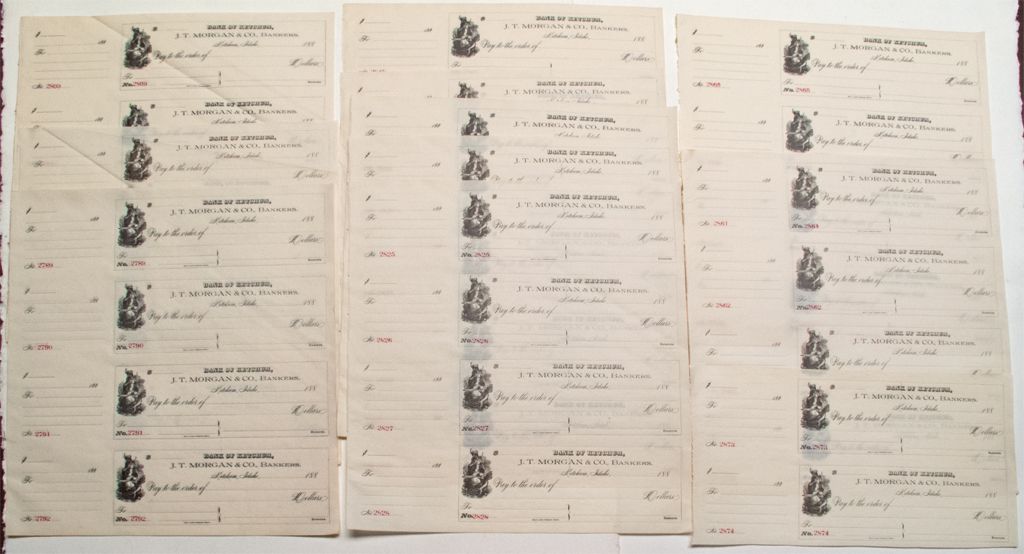 BANK OF KETCHUM,
J. T. MORGAN & CO., BANKERS.
Ketchum, Idaho. 188
Pay to the order of
Dollars
$ 188
To
No. 2809 No. 2809
BANK OF KETCHUM,
J. T. MORGAN & CO., BANKERS.
Ketchum, Idaho.
BANK OF KETCHUM,
J. T. MORGAN & CO., BANKERS.
Ketchum, Idaho. 188
Pay to the order of
Dollars
BANK OF KETCHUM,
J. T. MORGAN & CO., BANKERS.
Ketchum, Idaho. 188
Pay to the order of
Dollars
To
No. 2789 No. 2789
BANK OF KETCHUM,
J. T. MORGAN & CO., BANKERS.
Ketchum, Idaho. 188
Pay to the order of
Dollars
To
No. 2790 No. 2790
BANK OF KETCHUM,
J. T. MORGAN & CO., BANKERS.
Ketchum, Idaho. 188
Pay to the order of
Dollars
To
No. 2791 No. 2791
BANK OF KETCHUM,
J. T. MORGAN & CO., BANKERS.
Ketchum, Idaho. 188
Pay to the order of
Dollars
To
No. 2792 No. 2792
BANK OF KETCHUM,
J. T. MORGAN & CO., BANKERS.
Ketchum, Idaho. 188
Pay to the order of
Dollars
To
BANK OF KETCHUM,
J. T. MORGAN & CO., BANKERS.
BANK OF KETCHUM,
J. T. MORGAN & CO., BANKERS.
Ketchum, Idaho. 188
BANK OF KETCHUM,
J. T. MORGAN & CO., BANKERS.
Ketchum, Idaho. 188
Pay to the order of
BANK OF KETCHUM,
J. T. MORGAN & CO., BANKERS.
Ketchum, Idaho. 188
Pay to the order of
Dollars
To
No. 2825 No. 2825
BANK OF KETCHUM,
J. T. MORGAN & CO., BANKERS.
Ketchum, Idaho. 188
Pay to the order of
Dollars
To
No. 2826 No. 2826
BANK OF KETCHUM,
J. T. MORGAN & CO., BANKERS.
Ketchum, Idaho. 188
Pay to the order of
Dollars
To
No. 2827 No. 2827
BANK OF KETCHUM,
J. T. MORGAN & CO., BANKERS.
Ketchum, Idaho. 188
Pay to the order of
Dollars
To
No. 2828 No. 2828
BANK OF KETCHUM,
J. T. MORGAN & CO., BANKERS.
Ketchum, Idaho. 188
Pay to the order of
Dollars
To
No. 2865 No. 2865
BANK OF KETCHUM,
J. T. MORGAN & CO., BANKERS.
Ketchum, Idaho. 188
Pay to the order of
BANK OF KETCHUM,
J. T. MORGAN & CO., BANKERS.
Ketchum, Idaho. 188
Pay to the order of
Dollars
To
No. 2861 No. 2861
BANK OF KETCHUM,
J. T. MORGAN & CO., BANKERS.
Ketchum, Idaho. 188
Pay to the order of
Dollars
To
No. 2862 No. 2862
BANK OF KETCHUM,
J. T. MORGAN & CO., BANKERS.
Ketchum, Idaho. 188
Pay to the order of
Dollars
BANK OF KETCHUM,
J. T. MORGAN & CO., BANKERS.
Ketchum, Idaho. 188
Pay to the order of
Dollars
To
No. 2873 No. 2873
BANK OF KETCHUM,
J. T. MORGAN & CO., BANKERS.
Ketchum, Idaho. 188
Pay to the order of
Dollars
To
No. 2874 No. 2874